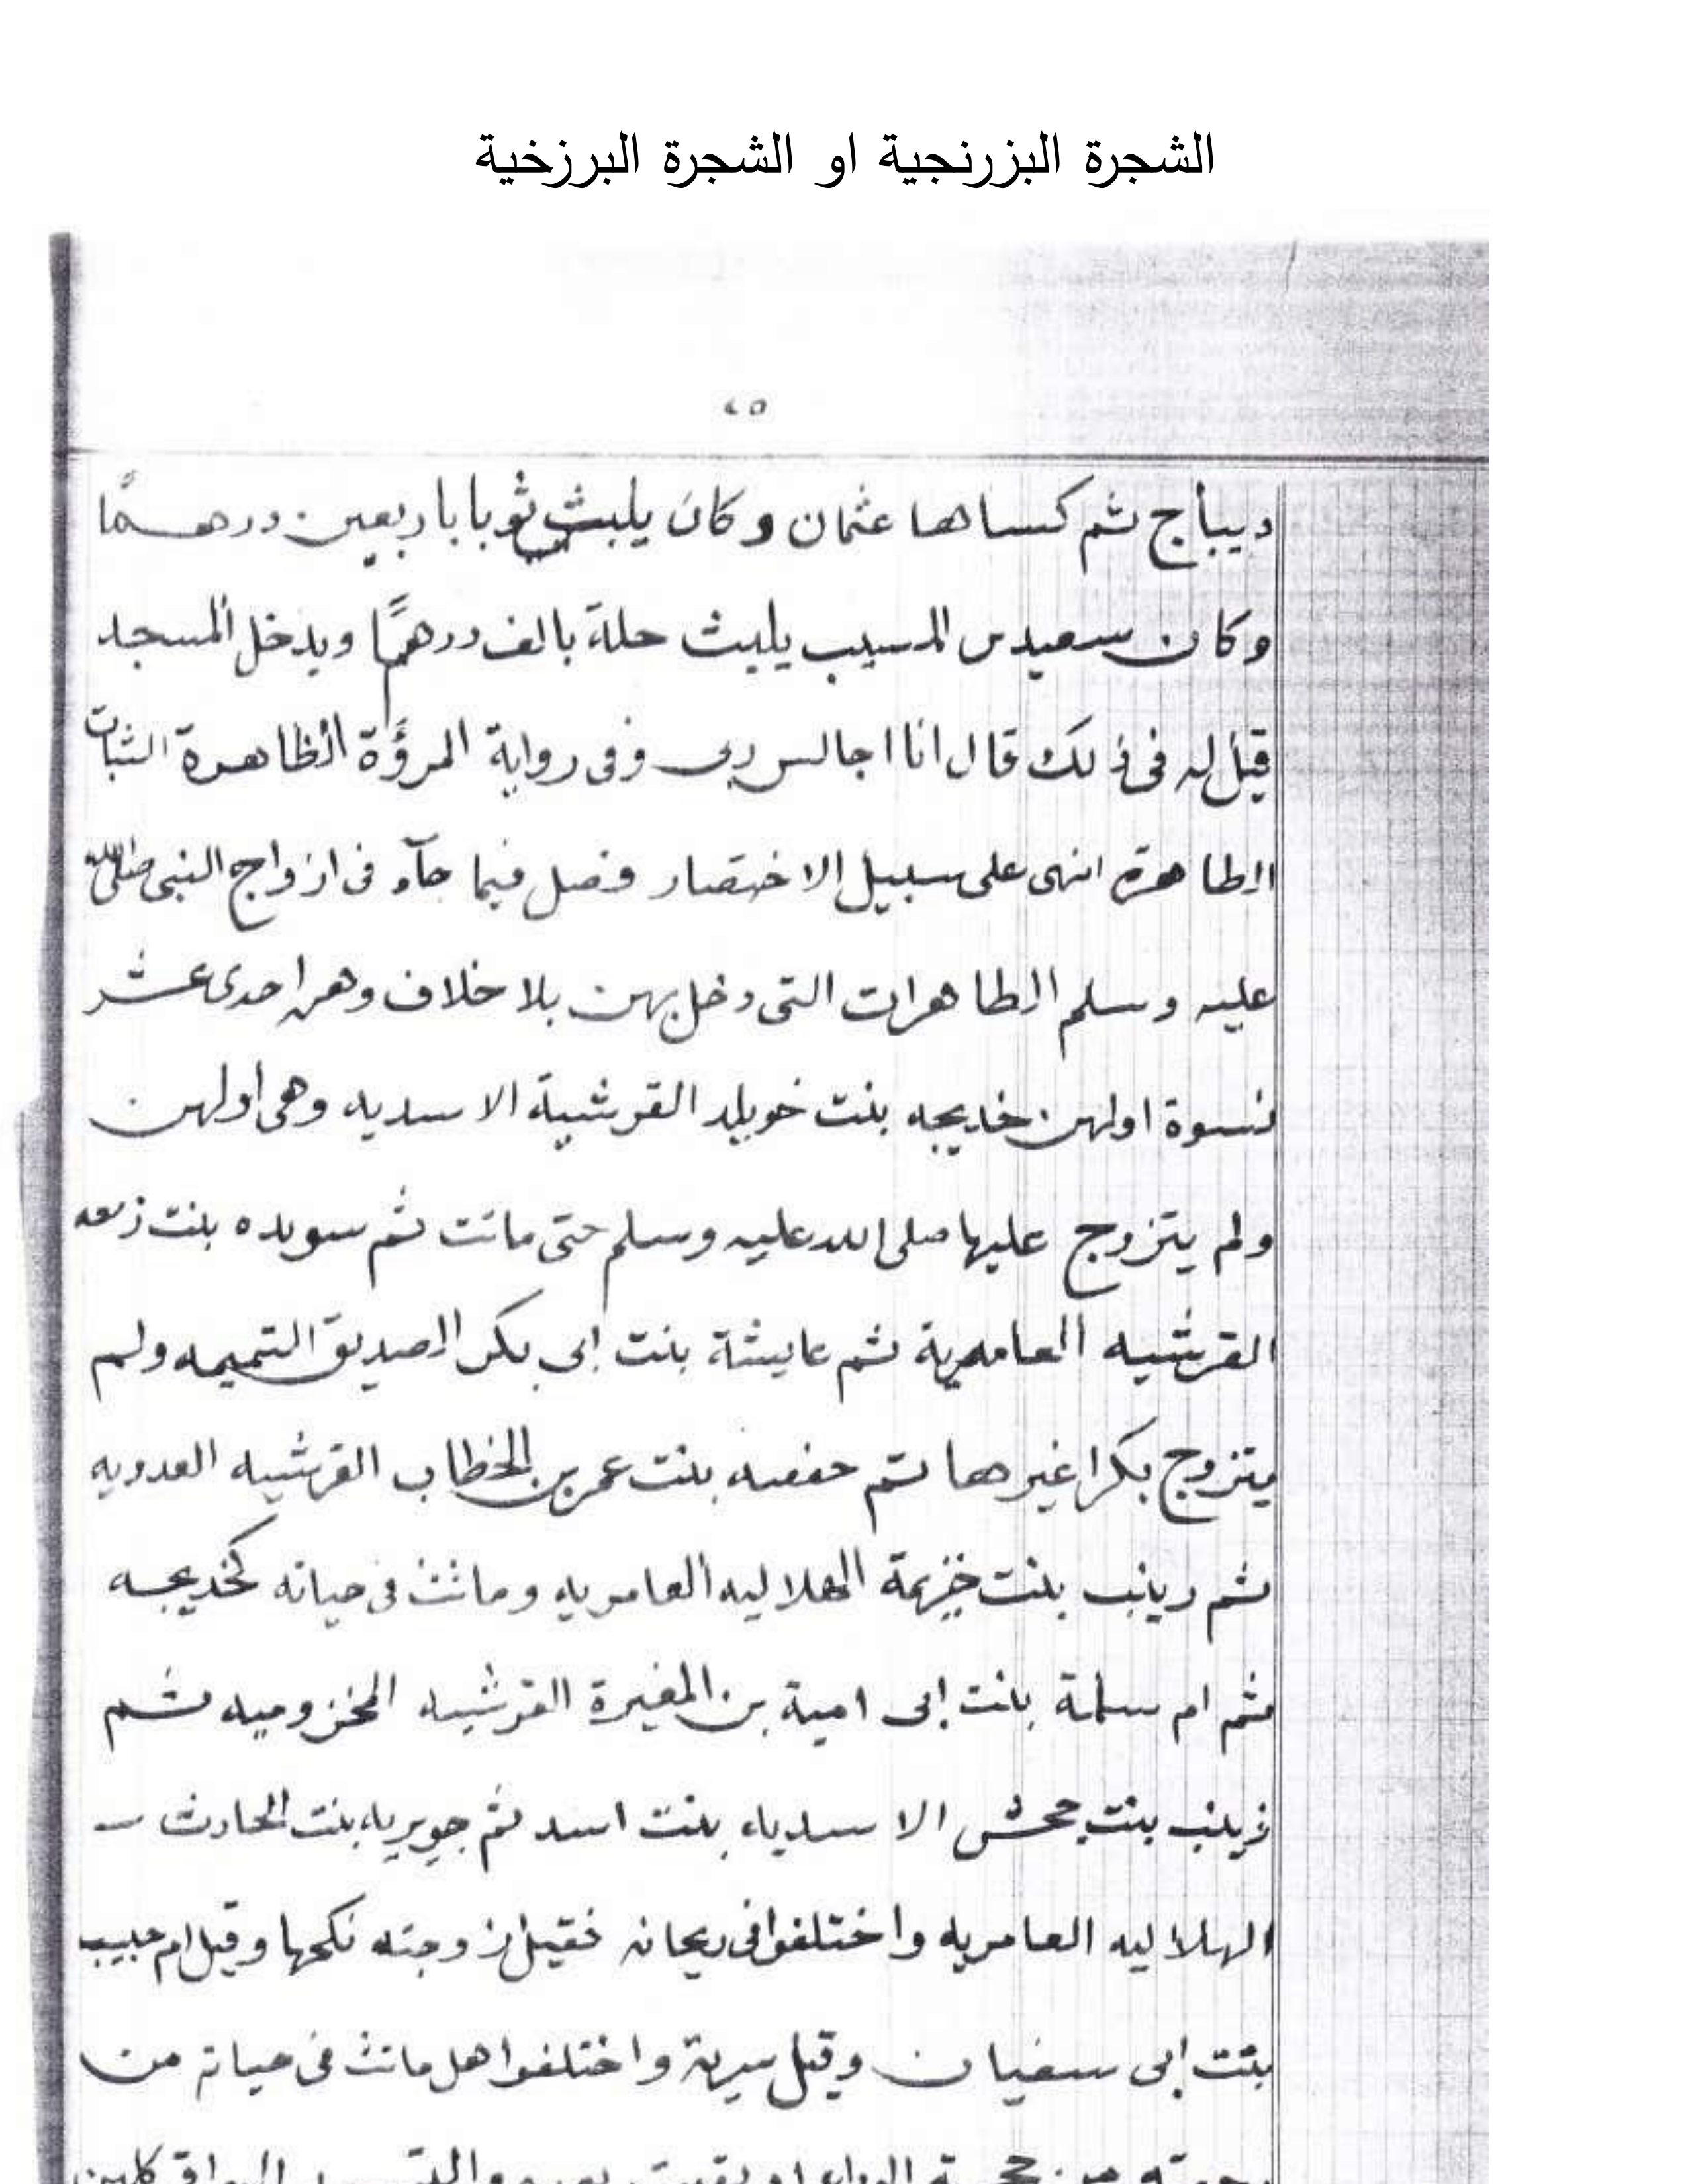 الشجرة البزرنجية او الشجرة البرزخية
٤٥
ديباج ثم كساها عثمان و كان يلبث ثوبا باربعين درهمًا
وكان سعيد بن المسيب يلبث حلة بالف درهمًا ويدخل المسجد
قيل له فى ذلك قال انا اجالس ربى وفى رواية المروَّة الظاهرة الثبات
الطاهرة انهى على سبيل الاختصار فصل فيما جآء فى ازواج النبى صلى الله
عليه وسلم الطاهرات التى دخل بهن بلا خلاف وهن احدى عشر
نسوة اولهن خديجه بنت خويلد القرشية الاسديه وهى اولهن
ولم يتزوج عليها صلى الله عليه وسلم حتى ماتت ثم سويده بنت زمعه
القرشيه العامرية ثم عايشة بنت ابى بكر الصديق التميميه ولم
يتزوج بكرا غيرها ثم حفصه بنت عمر بن الخطاب القرشيه العدويه
ثم زينب بنت خزيمة الهلاليه العامريه وماتت فى حياته كخديجه
ثم ام سلمة بنت ابى امية بن المغيرة القرشيه المخزوميه ثم
زينب بنت جحش الاسدياء بنت اسد ثم جويريه بنت الحارث
الهلاليه العامريه واختلفوا فى ريحانه فقيل زوجته نكحها وقيل ام حبيب
بنت ابى سفيان وقيل سرية واختلفوا هل ماتت فى حياته من